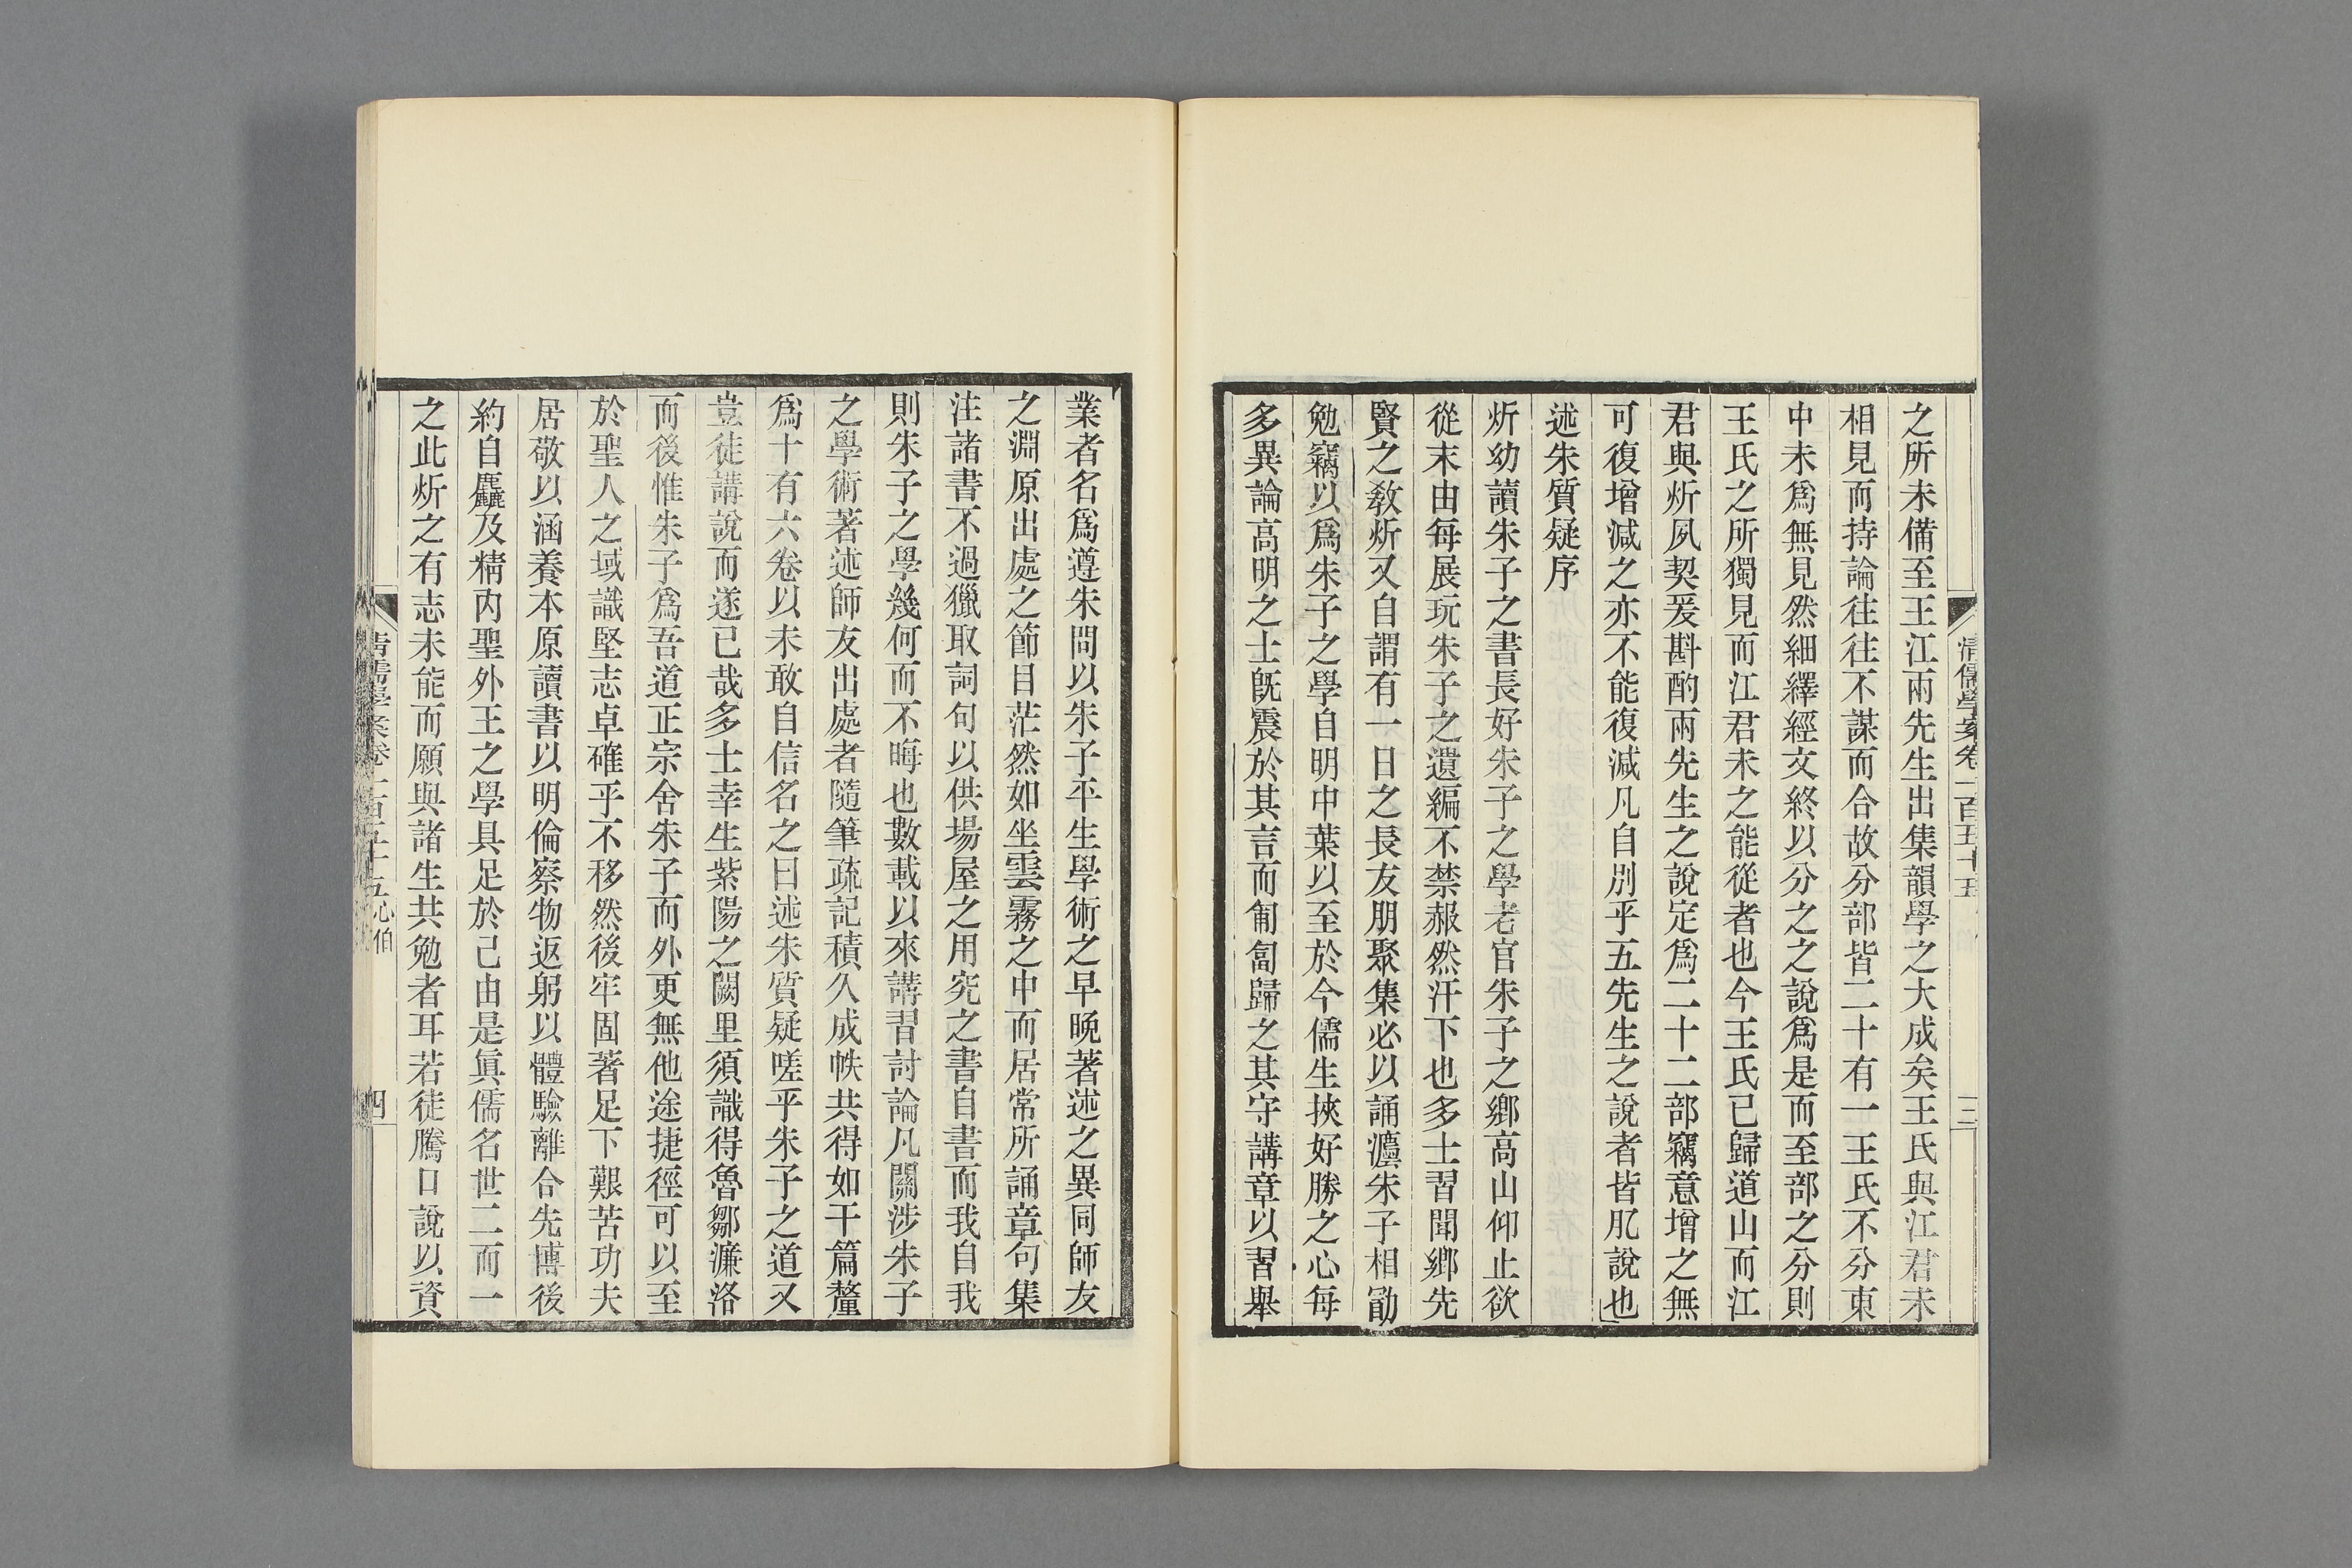 清儒學案卷一百五十五
三
之所未備至王江兩先生出集韻學之大成矣王氏與江君未
相見而持論往往不謀而合故分部皆二十有一王氏不分東
中未爲無見然細繹經文終以分之之說爲是而至部之分則
王氏之所獨見而江君未之能從者也今王氏已歸道山而江
君與炘夙契爰斟酌兩先生之說定爲二十二部竊意增之無
可復增減之亦不能復減凡自別乎五先生之說者皆肊說也
述朱質疑序
炘幼讀朱子之書長好朱子之學老官朱子之鄉高山仰止欲
從末由每展玩朱子之遺編不禁赧然汗下也多士習聞鄉先
賢之敎炘又自謂有一日之長友朋聚集必以誦灋朱子相勖
勉竊以爲朱子之學自明中葉以至於今儒生挾好勝之心每
多異論高明之士旣震於其言而匍匐歸之其守講章以習舉
業者名爲遵朱問以朱子平生學術之早晚著述之異同師友
之淵原出處之節目茫然如坐雲霧之中而居常所誦章句集
注諸書不過獵取詞句以供場屋之用究之書自書而我自我
則朱子之學幾何而不晦也數載以來講習討論凡關涉朱子
之學術著述師友出處者隨筆疏記積久成帙共得如干篇釐
爲十有六卷以未敢自信名之曰述朱質疑嗟乎朱子之道又
豈徒講說而遂已哉多士幸生紫陽之闕里須識得魯鄒濂洛
而後惟朱子爲吾道正宗舍朱子而外更無他途捷徑可以至
於聖人之域識堅志卓確乎不移然後牢固著足下艱苦功夫
居敬以涵養本原讀書以明倫察物返躬以體驗離合先博後
約自麤及精内聖外王之學具足於己由是眞儒名世二而一
之此炘之有志未能而願與諸生共勉者耳若徒騰口說以資
清儒學案卷一百五十五 心伯
四